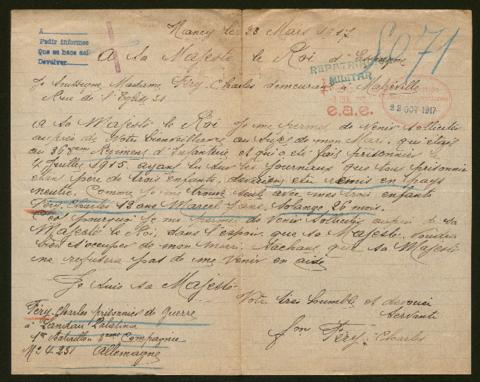 A
Pedir informes
Que se hace así
Devolver
Nancy le 28 Mars 1917
A Sa Majesté le Roi d'Espagne
8071
REPATRIA
MILITAR
e.a.e.
22 OCT 1917
Je Soussigné Madame Féry Charles demeurant à Maxéville
Rue de l'Eglise 51
A Sa Majesté le Roi Je me permet de venir solliciter
auprès de Votre bienveillance au sujet de mon Mari qui était
au 36 ème Régiment d'infanterie et qui a été fait prisonnier le
7 Juillet 1915. ayant lu sur les journaux que tous prisonnier
étant père de trois enfants devraient être remis en pays
neutre. Comme Je me trouve seule avec mes trois enfants
Féry Charles 12 ans Marcel 7 ans Solange 26 mois.
C'est pourquoi Je me permet de venir solliciter auprès de Sa
Majesté le Roi, dans l'espoir que Sa Majesté voudra
bien s'occuper de mon Mari. Sachant que Sa Majesté
ne refusera pas de me venir en aide
Je Suis Sa Majesté
Votre très humble et
Servante
Féry Charles
Féry Charles prisonnier de Guerre
à Landau Palatina
1er Bataillon Compagnie
No 4351 Allemagne